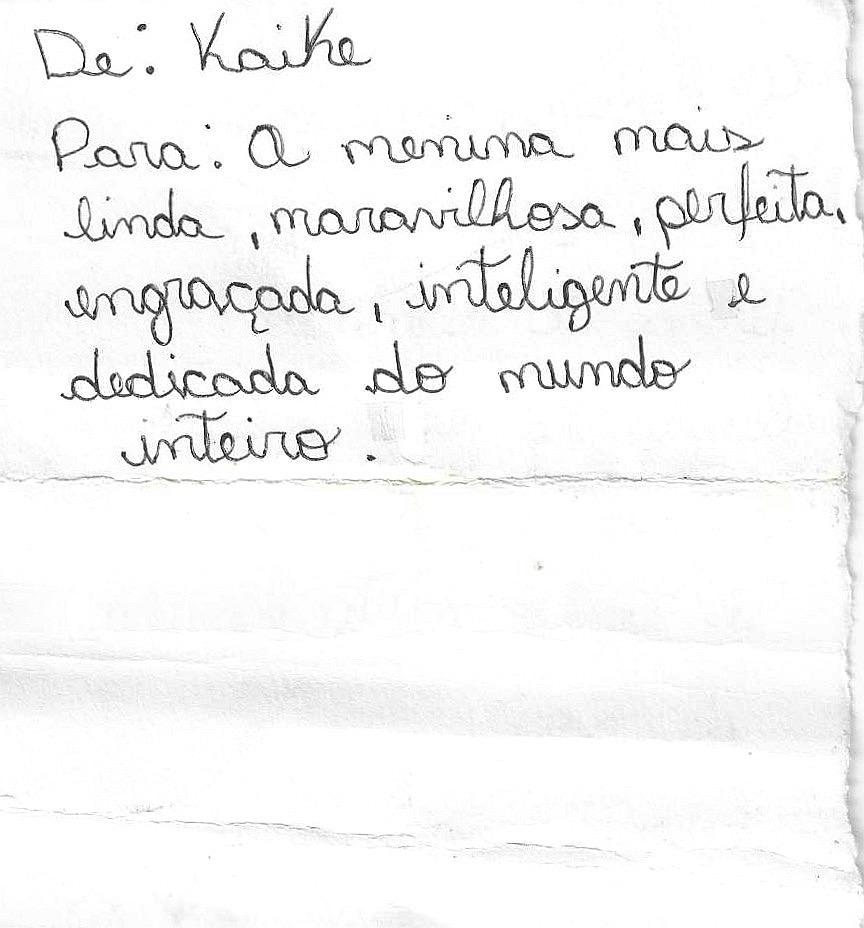 De: Kaike
Para: A menina mais
linda, maravilhosa, perfeita,
engraçada, inteligente e
dedicada do mundo
inteiro.